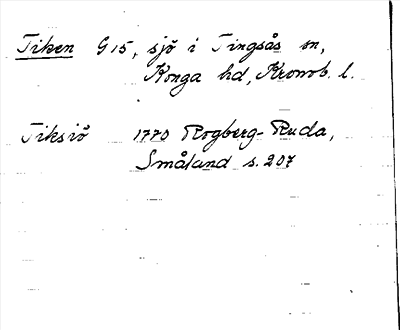 Tiken G15, sjö i Tingsås sn,
Konga hd, Kronob. l.
Tiksiö 1770 Rogberg-Ruda,
Småland s. 207